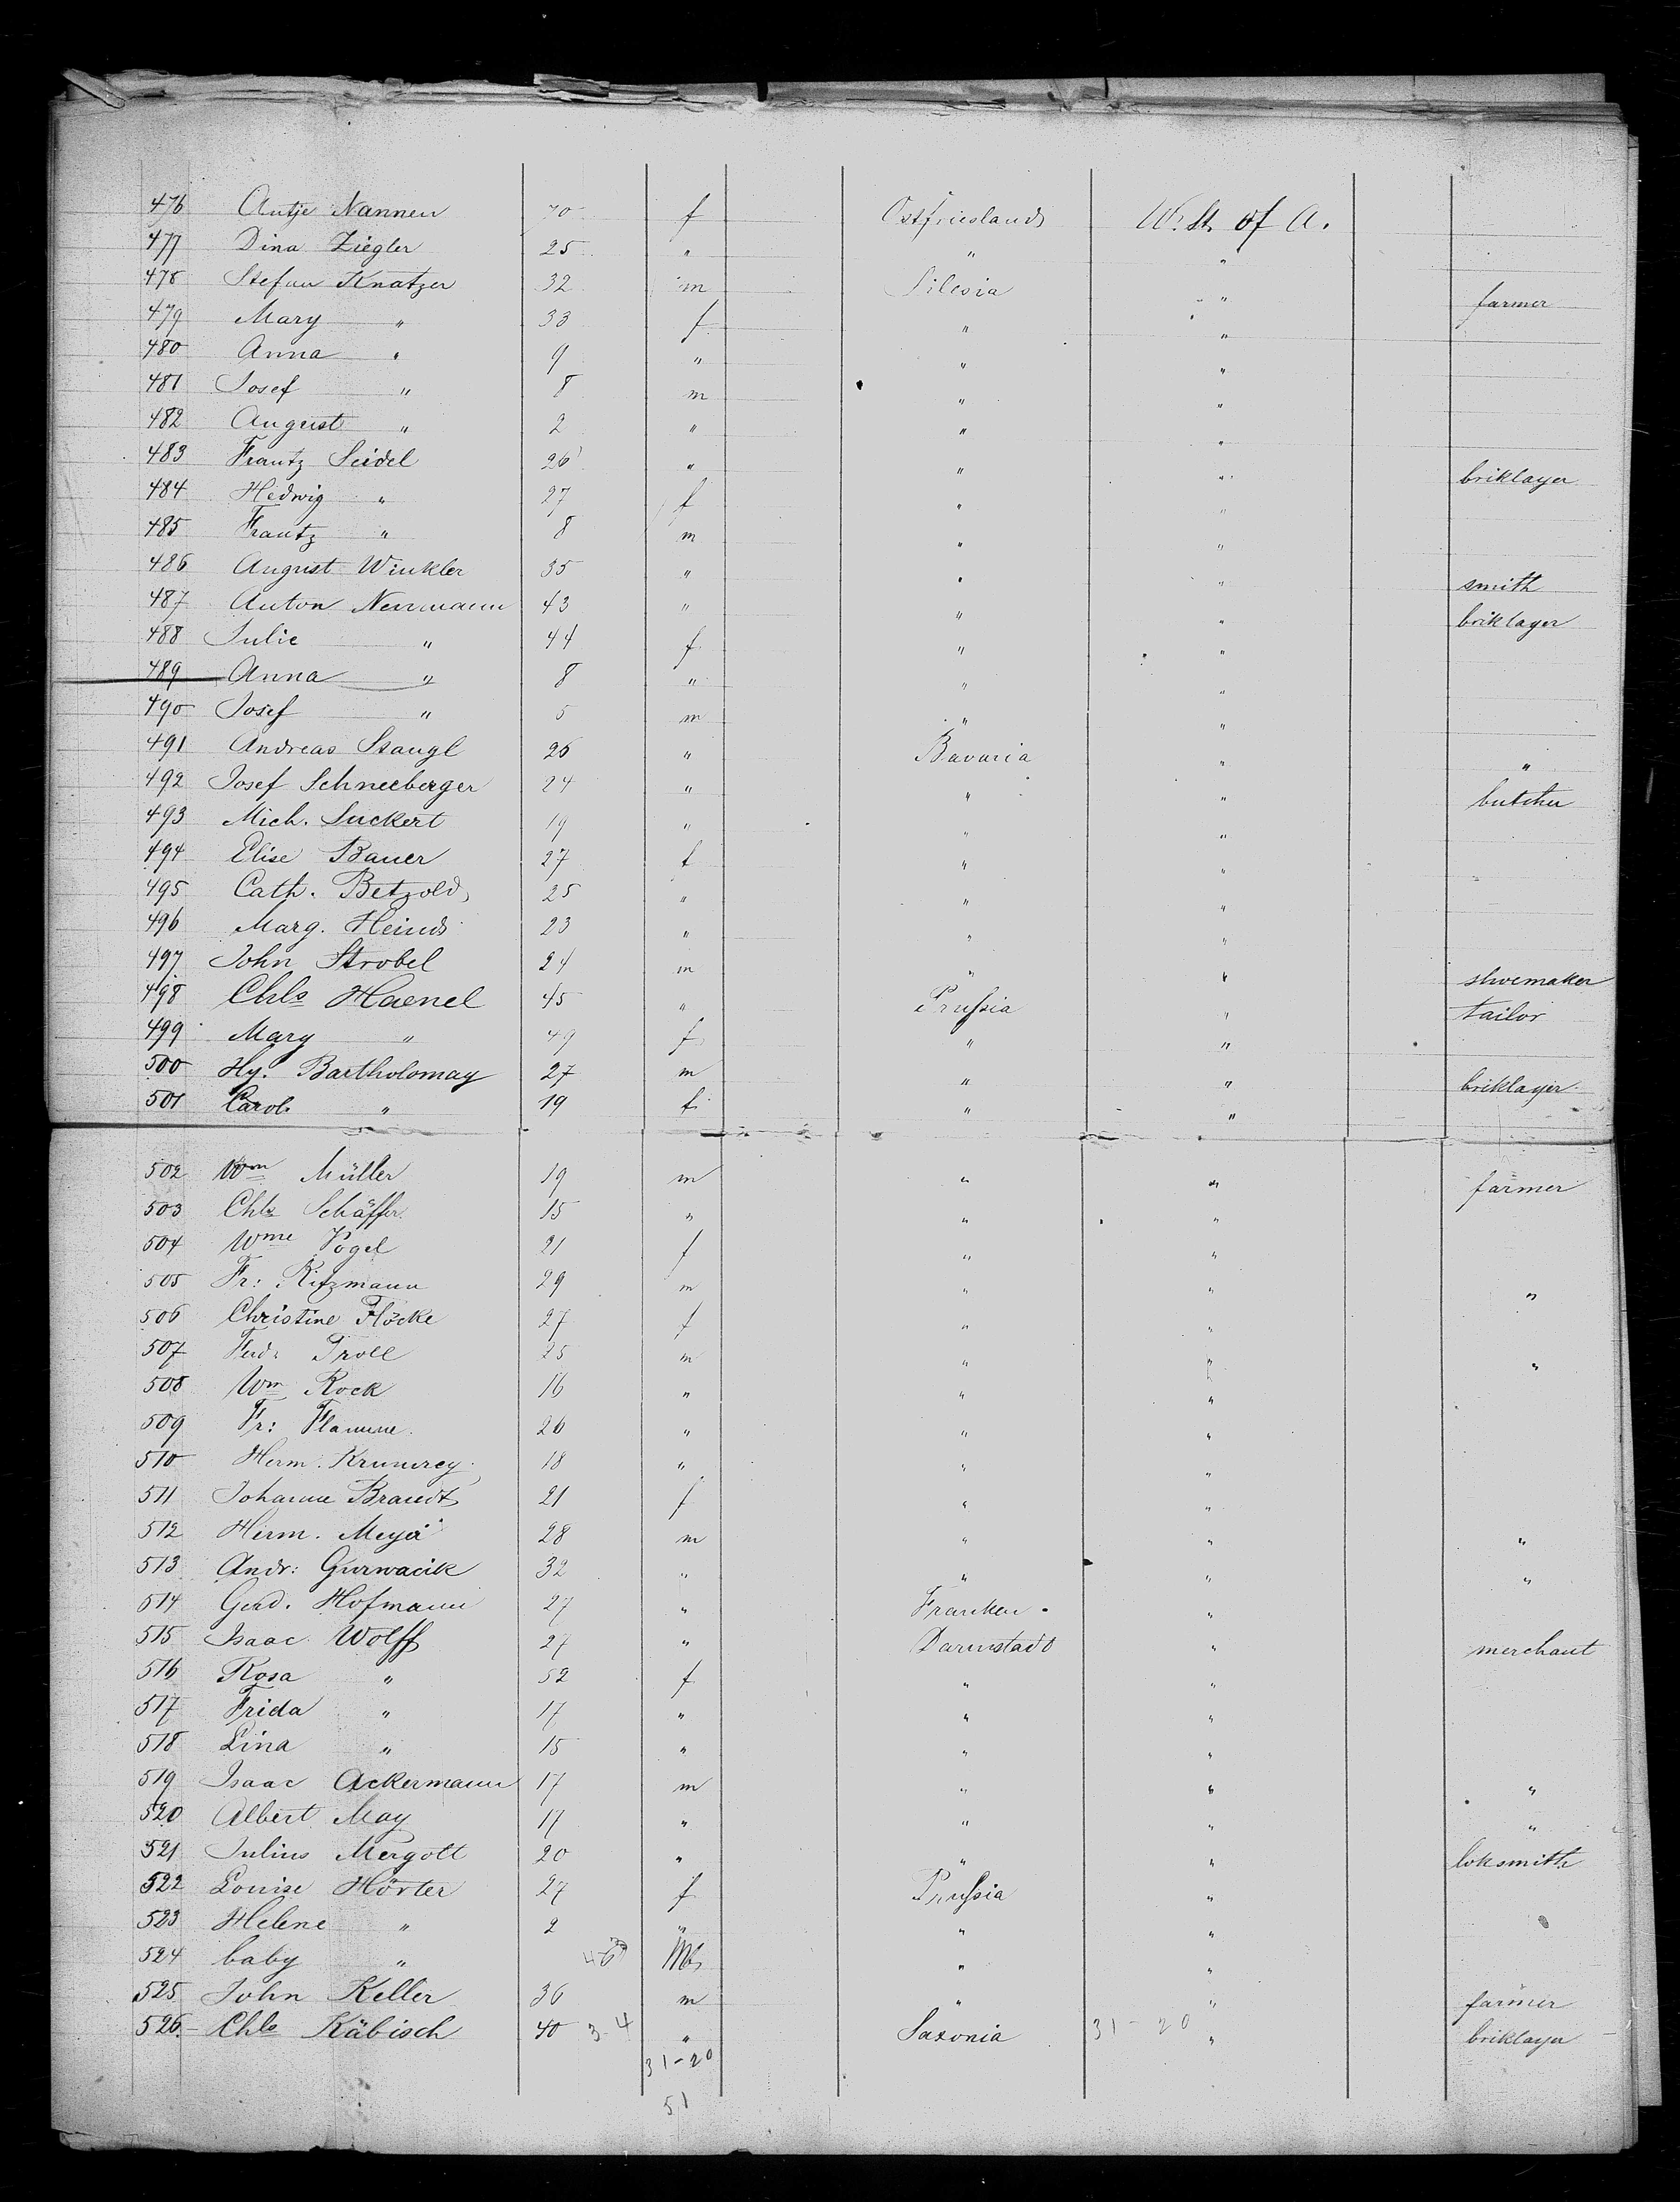 476 Antje Nannen 70 f Ostfriesland U. St. of A.
477 Dina Ziegler 25 " " "
478 Stefan Knatzer 32 m Silesia " farmer
479 Mary " 33 f " "
480 Anna " 9 " " "
481 Josef " 8 m " "
482 August " 2 " " "
483 Frantz Seidel 26 " " " briklayer
484 Hedwig " 27 f " "
485 Frantz " 8 m " "
486 August Winkler 35 " " " smith
487 Anton Neumann 43 " " " briklayer
488 Julie " 44 f " "
489 Anna " 8 " " "
490 Josef " 5 m " "
491 Andreas Stangl 26 " Bavaria " "
492 Josef Schneeberger 24 " " " butcher
493 Mich. Suckert 19 " " "
494 Elise Bauer 27 f " "
495 Cath. Betzold 25 " " "
496 Marg. Heinds 23 " " "
497 John Strobel 24 m " " shoemaker
498 Chls Haenel 45 " Prussia " tailor
499 Mary " 49 f " "
500 Hy. Bartholomay 27 m " " briklayer
501 Carol. " 19 f " "
502 Wm Müller 19 m " " farmer
503 Chls Schäffer 15 " " "
504 Wme Vogel 21 f " "
505 Fr: Ritzmann 29 m " " "
506 Christine Flöcke 27 f " "
507 Ferd: Troll 25 m " " "
508 Wm Rock 16 " " "
509 Fr: Flamme 26 " " "
510 Herm. Krumrey 18 " " "
511 Johanne Brandt 21 f " "
512 Herm. Meyer 28 m " " "
513 Andr: Gurwacik 32 " " " "
514 Gerd. Hofmann 27 " Franken "
515 Isaac Wolff 27 " Darmstadt " merchant
516 Rosa " 52 f " "
517 Frida " 17 " " "
518 Lina " 15 " " "
519 Isaac Ackermann 17 m " " "
520 Albert May 17 " " " "
521 Julius Mergott 20 " " " loksmith
522 Louise Hörter 27 f Prussia "
523 Helene " 2 " " "
524 baby " " "
525 John Keller 36 m " " farmer
526 Chls Käbisch 40 3-4 " Saxonia 31-20 " briklayer
31-20
51